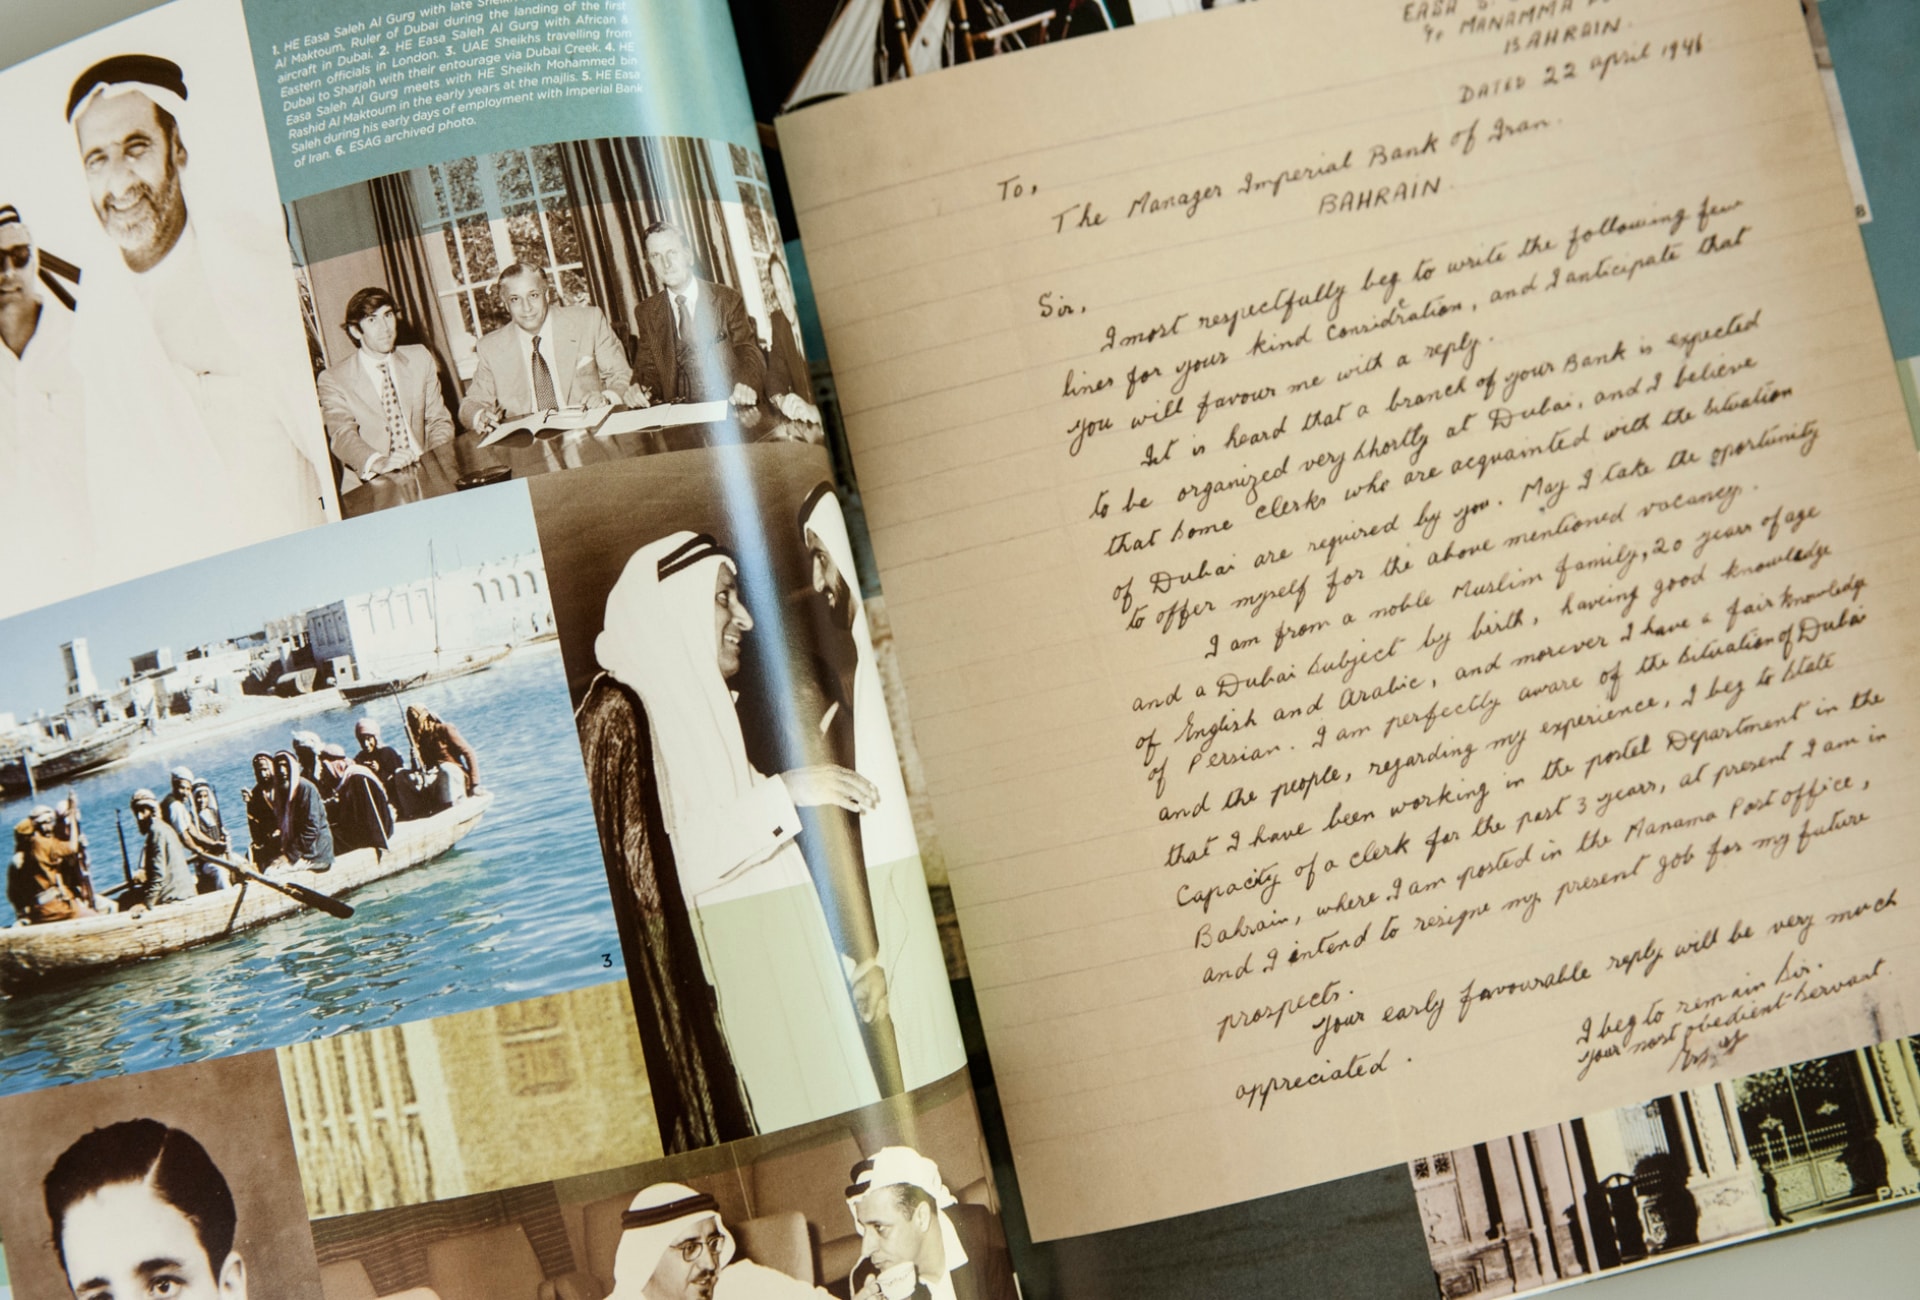 1. HE Easa Saleh Al Gurg with late Sheikh
Al Maktoum, Ruler of Dubai during the landing of the first
aircraft in Dubai. 2. HE Easa Saleh Al Gurg with African &
Eastern officials in London. 3. UAE Sheikhs travelling from
Dubai to Sharjah with their entourage via Dubai Creek. 4. HE
Easa Saleh Al Gurg meets with HE Sheikh Mohammed bin
Rashid Al Maktoum in the early years at the majlis. 5. HE Easa
Saleh during his early days of employment with Imperial Bank
of Iran. 6. ESAG archived photo.
1
3
EASA S.
C/o MANAMMA
BAHRAIN.
DATED 22 april 1946
To,
The Manager Imperial Bank of Iran.
BAHRAIN.
Sir,
I most respectfully beg to write the following few
lines for your kind Considration, and I anticipate that
you will favour me with a reply.
It is heard that a branch of your Bank is expected
to be organized very shortly at Dubai, and I believe
that some clerks who are acquainted with the situation
of Dubai are required by you. May I take the oportunity
to offer myself for the above mentioned vacancy.
I am from a noble Muslim family, 20 years of age
and a Dubai subject by birth, haveing good knowledge
of English and Arabic, and morever I have a fair knowledge
of Persian. I am perfectly aware of the situation of Dubai
and the people, regarding my experience, I beg to state
that I have been working in the postel Department in the
Capacity of a clerk for the past 3 years, at present I am in
Bahrain, where I am posted in the Manama Post office,
and I intend to resigne my present job for my future
prospects.
Your early favourable reply will be very much
appreciated.
I beg to remain Sir.
Your most obedient Servant.
8
PAR